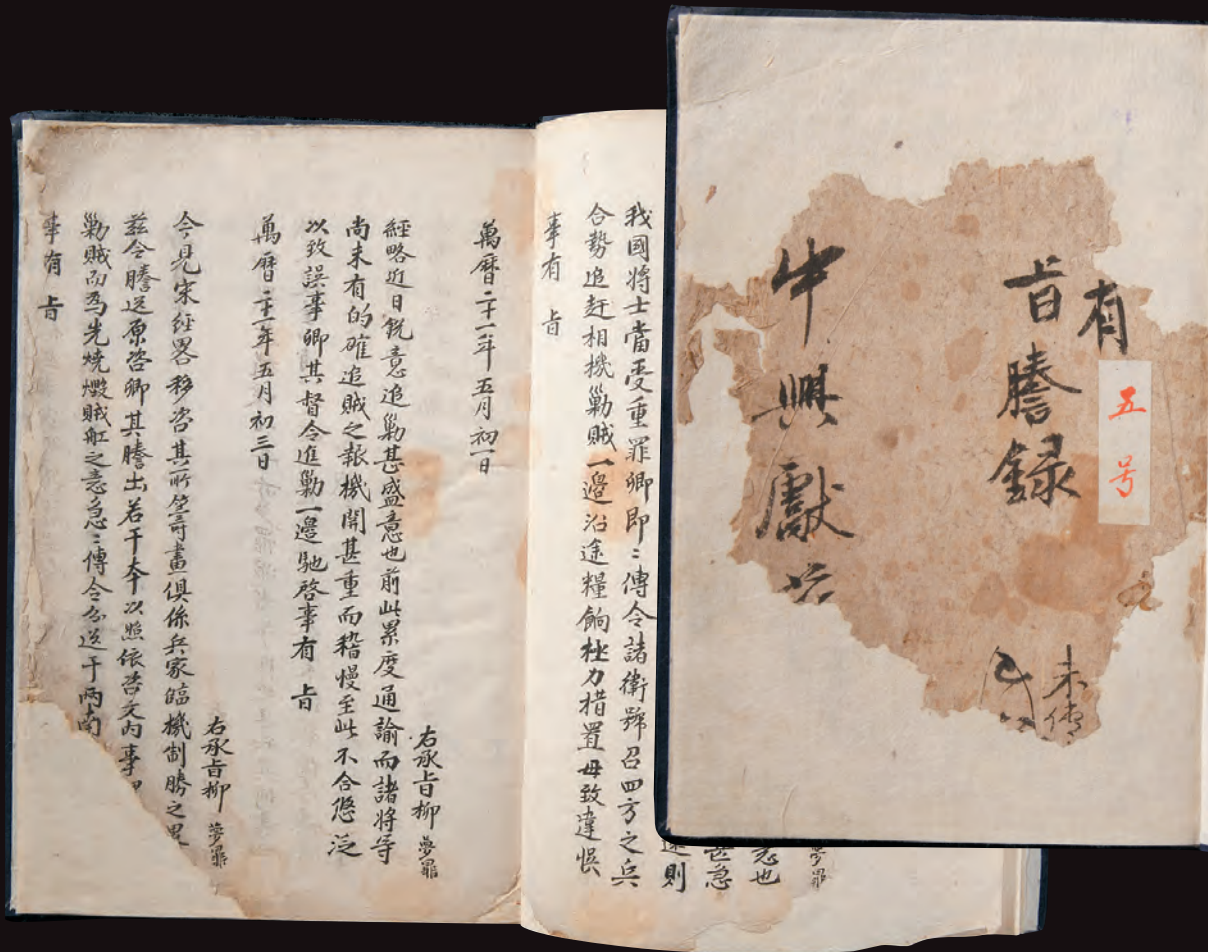 有
旨謄錄
五号
中興獻
未傳
夢鼎
也
甚急
則
我國將士當受重罪卿即〻傳令諸衛號召四方之兵
合勢追赶相機勦賊一邊沿途糧餉極力措置毋致違悮
事有 旨
萬曆二十一年五月初一日
右承旨柳 夢鼎
經略近日銳意追勦甚盛意也前此累度通諭而諸將等
尚未有的確追賊之報機關甚重而稽慢至此不合悠泛
以致誤事卿其督令進勦一邊馳啓事有 旨
萬曆二十一年五月初三日
右承旨柳 夢鼎
今見宋經畧移咨其所籌畫俱係兵家臨機制勝之
玆令謄送原咨卿其謄出若干本以照依咨文內事
勦賊而爲先燒燬賊舡之意急〻傳令分送于兩南
事有 旨